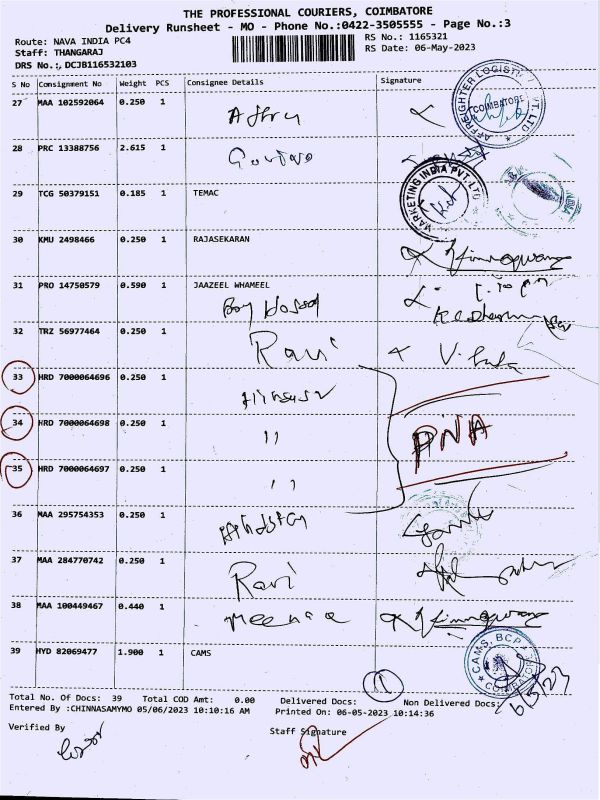 THE PROFESSIONAL COURIERS, COIMBATORE
Delivery Runsheet - MO - Phone No.:0422-3505555 - Page No.:3
Route: NAVA INDIA PC4
RS No.: 1165321
Staff: THANGARAJ
RS Date: 06-May-2023
DRS No.:, DCJB116532103
S No Consignment No Weight PCS Consignee Details Signature
27 MAA 102592064 0.250 1
AFFREIGHTER LOGISTI PVT. LTD
COIMBATORE
28 PRC 13388756 2.615 1
MARKETING INDIA PVT. LTD
29 TCG 50379151 0.185 1 TEMAC
INDIA
30 KMU 2498466 0.250 1 RAJASEKARAN
31 PRO 14750579 0.590 1 JAAZEEL WHAMEEL
32 TRZ 56977464 0.250 1 Ravi
33 HRD 7000064696 0.250 1
34 HRD 7000064698 0.250 1 "
PNA
35 HRD 7000064697 0.250 1 "
36 MAA 295754353 0.250 1
37 MAA 284770742 0.250 1 Ravi
38 MAA 100449467 0.440 1 Meena
39 HYD 82069477 1.900 1 CAMS
CAMS, BCP
COIMBATORE
6/5/23
Total No. Of Docs: 39 Total COD Amt: 0.00 Delivered Docs: Non Delivered Docs:
Entered By :CHINNASAMYMO 05/06/2023 10:10:16 AM Printed On: 06-05-2023 10:14:36
Verified By
Staff Signature